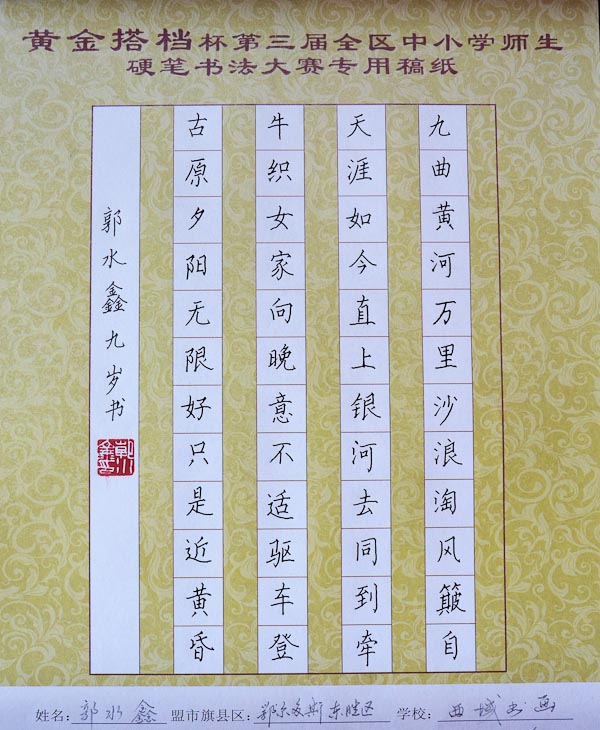 黄金搭档杯第三届全区中小学师生
硬笔书法大赛专用稿纸
九曲黄河万里沙浪淘风簸自
天涯如今直上银河去同到牵
牛织女家向晚意不适驱车登
古原夕阳无限好只是近黄昏
郭水鑫九岁书
姓名：郭水鑫 盟市旗县区：鄂尔多斯东胜区 学校：西域书画